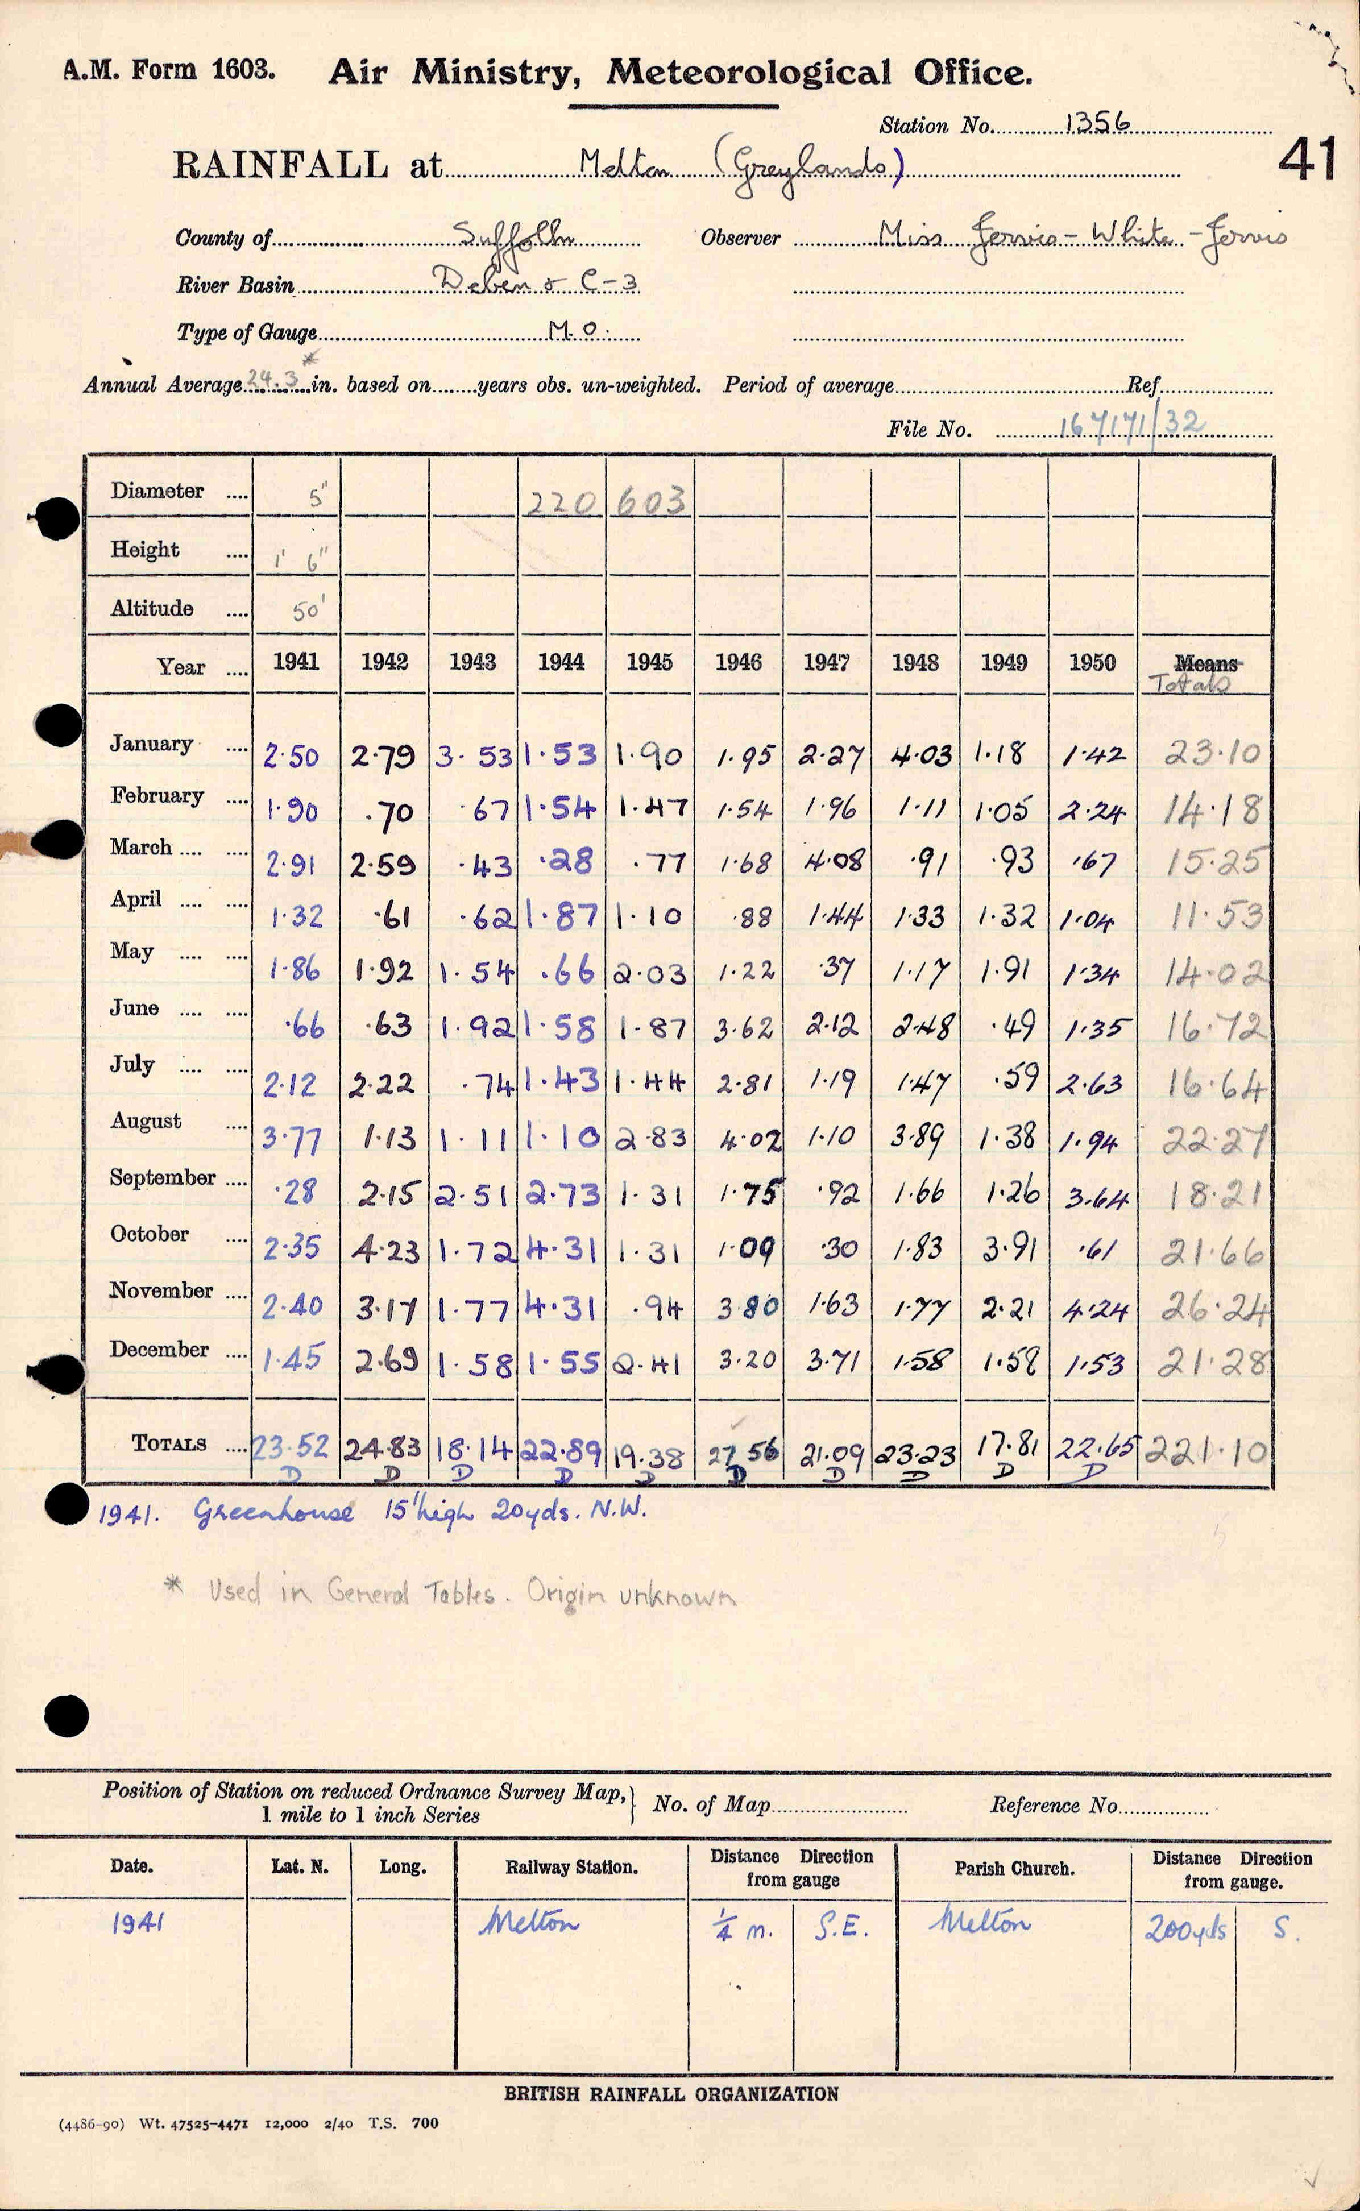 A.M. Form 1603. Air Ministry, Meteorological Office.
Station No. 1356
41
RAINFALL at Melton (Greylands)
County of Suffolk Observer Miss Jervis-White-Jervis
River Basin Deben & C-3
Type of Gauge M.O.
Annual Average 24.3* in. based on years obs. un-weighted. Period of average Ref.
File No. 167171/32
Diameter .... 5" 220 603
Height .... 1' 6"
Altitude .... 50'
Year .... 1941 1942 1943 1944 1945 1946 1947 1948 1949 1950 Means
Totals
January .... 2.50 2.79 3.53 1.53 1.90 1.95 2.27 4.03 1.18 1.42 23.10
February .... 1.90 .70 .67 1.54 1.47 1.54 1.96 1.11 1.05 2.24 14.18
March .... .... 2.91 2.59 .43 .28 .77 1.68 4.08 .91 .93 .67 15.25
April .... .... 1.32 .61 .62 1.87 1.10 .88 1.44 1.33 1.32 1.04 11.53
May .... .... 1.86 1.92 1.54 .66 2.03 1.22 .37 1.17 1.91 1.34 14.02
June .... .... .66 .63 1.92 1.58 1.87 3.62 2.12 2.48 .49 1.35 16.72
July .... .... 2.12 2.22 .74 1.43 1.44 2.81 1.19 1.47 .59 2.63 16.64
August .... 3.77 1.13 1.11 1.10 2.83 4.02 1.10 3.89 1.38 1.94 22.27
September .... .28 2.15 2.51 2.73 1.31 1.75 .92 1.66 1.26 3.64 18.21
October .... 2.35 4.23 1.72 4.31 1.31 1.09 .30 1.83 3.91 .61 21.66
November .... 2.40 3.17 1.77 4.31 .94 3.80 1.63 1.77 2.21 4.24 26.24
December .... 1.45 2.69 1.58 1.55 2.41 3.20 3.71 1.58 1.58 1.53 21.28
TOTALS .... 23.52 24.83 18.14 22.89 19.38 27.56 21.09 23.23 17.81 22.65 221.10
D D D D D D D D D D
1941. Greenhouse 15' high 20yds. N.W.
* Used in General Tables. Origin unknown
Position of Station on reduced Ordnance Survey Map, 1 mile to 1 inch Series } No. of Map Reference No.
Date. Lat. N. Long. Railway Station. Distance Direction from gauge Parish Church. Distance Direction from gauge.
1941 Melton 1/4 m. S.E. Melton 200yds S.
BRITISH RAINFALL ORGANIZATION
(4486-90) Wt. 47525-4471 12,000 2/40 T.S. 700